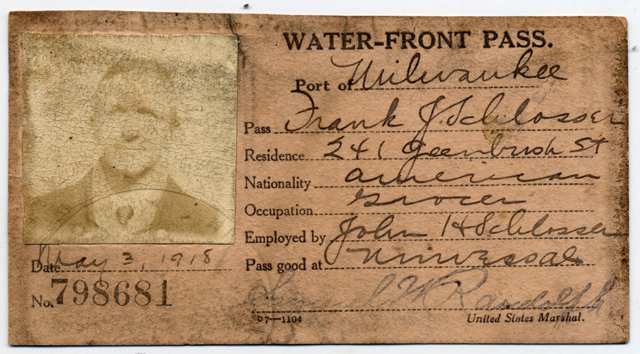 WATER-FRONT PASS.
Port of Milwaukee
Pass Frank J. Schlosser
Residence 241 Greenbush St
Nationality American
Occupation Grocer
Employed by John H Schlosser
Date May 3, 1918
Pass good at Universal
No. 798681
J W Randolph
D7—1104
United States Marshal.